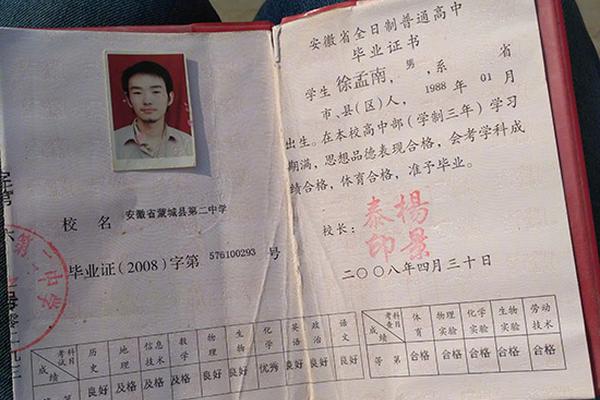 校名 安徽省蒙城县第二中学
毕业证(2008)字第 576100293 号
考试科目 历史 地理 信息技术 数学 物理 生物 化学 英语 政治 语文
成绩 良好 及格 及格 及格 良好 良好 优秀 良好 良好 良好
安徽省全日制普通高中
毕业证书
学生 徐孟南,男,系 省
市、县(区)人, 1988 年 01 月
出生。在本校高中部(学制三年)学习
期满,思想品德表现合格,会考学科成
绩合格,体育合格,准予毕业。
校长: 楊景泰印
二〇〇八年四月三十日
考查科目 体育 物理实验 化学实验 生物实验 劳动技术
成绩 等第 合格 合格 合格 合格 合格